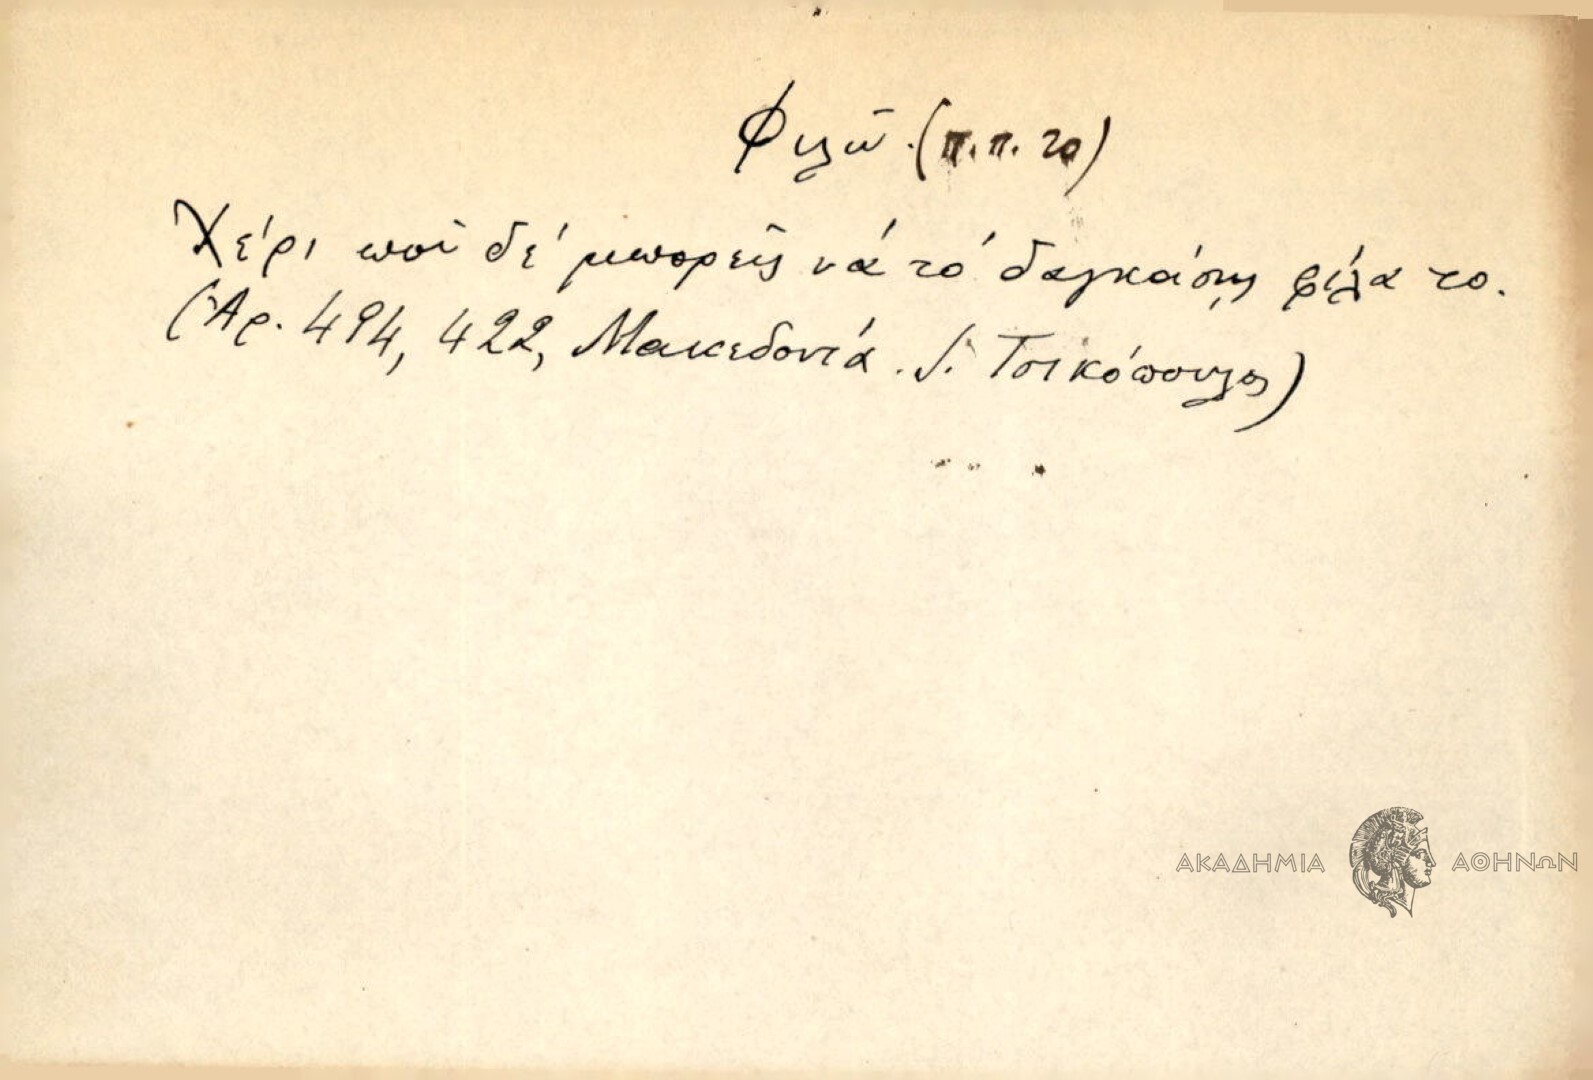 Φιλῶ. (π.π. 20)
Χέρι ποὺ δέ μπορεῖς νά τό δαγκάσῃς φίλα το.
(Ἀρ. 494, 422, Μακεδονία. Ι. Τσικόπουλος)
ΑΚΑΔΗΜΙΑ ΑΘΗΝΩΝ